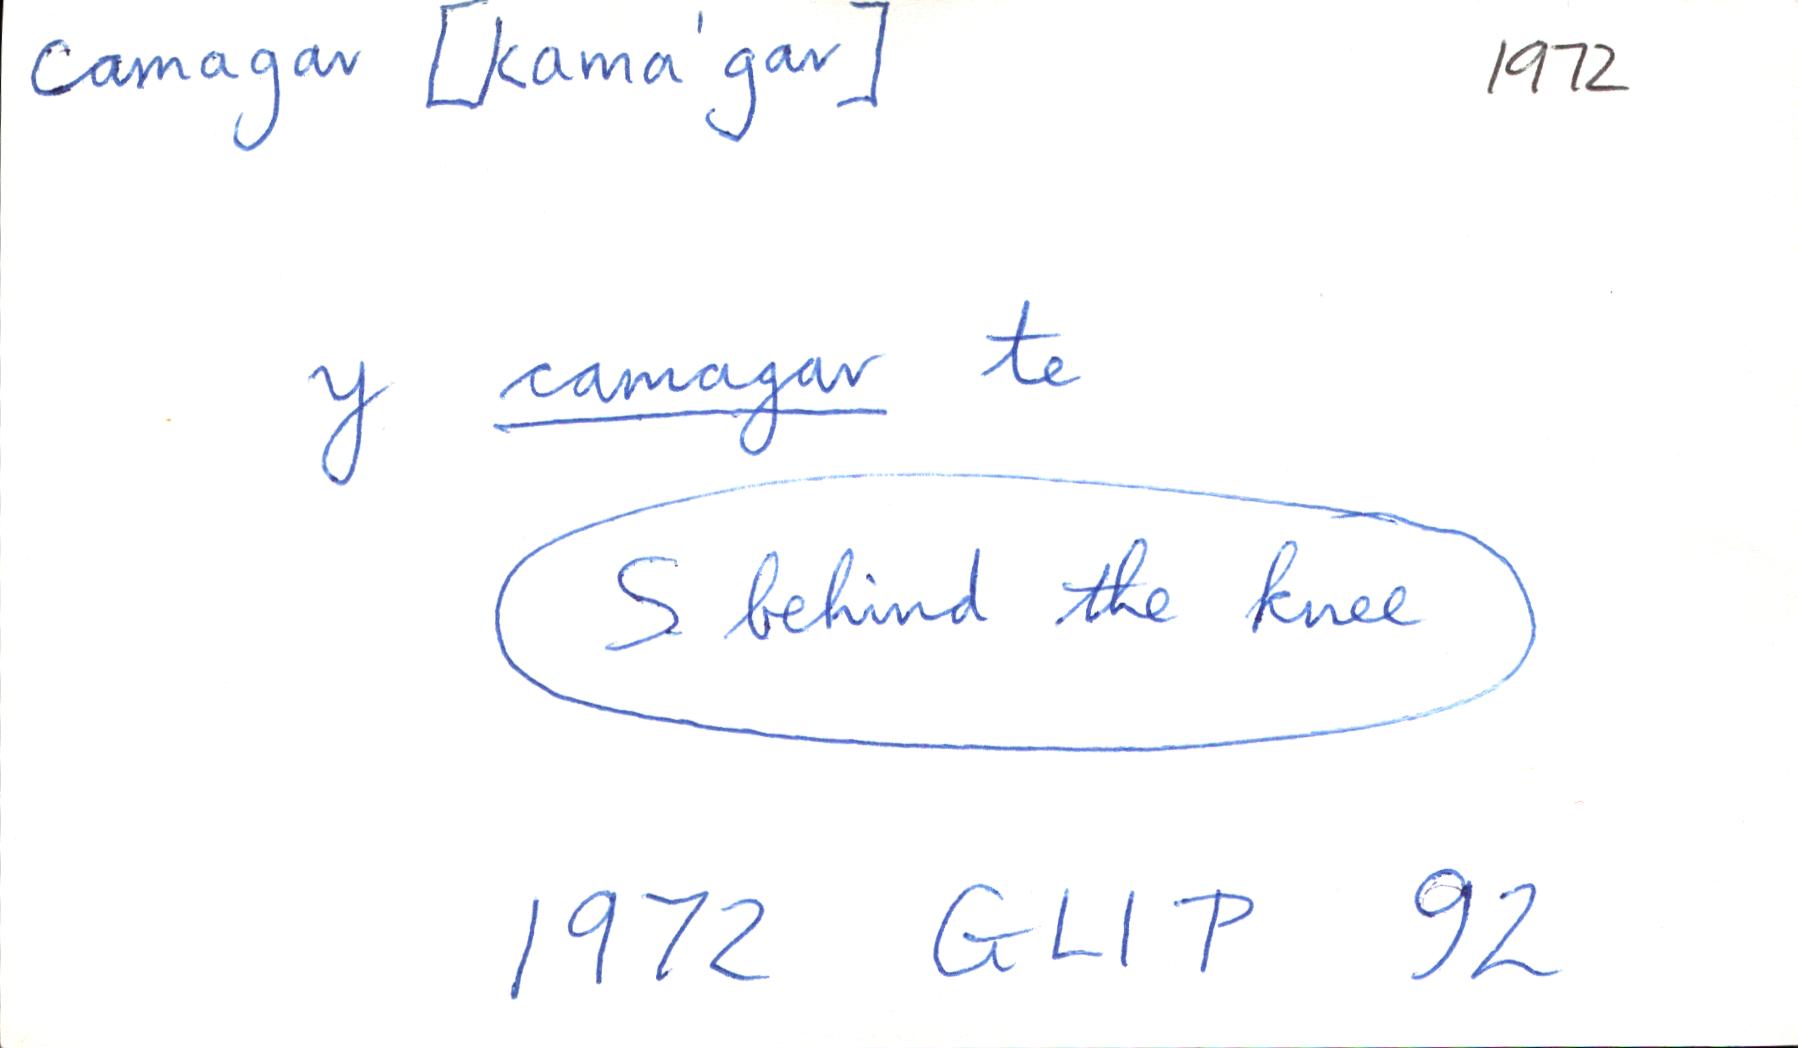 camagar [kama'gar] 1972
y camagar te
S behind the knee
1972 GLIP 92